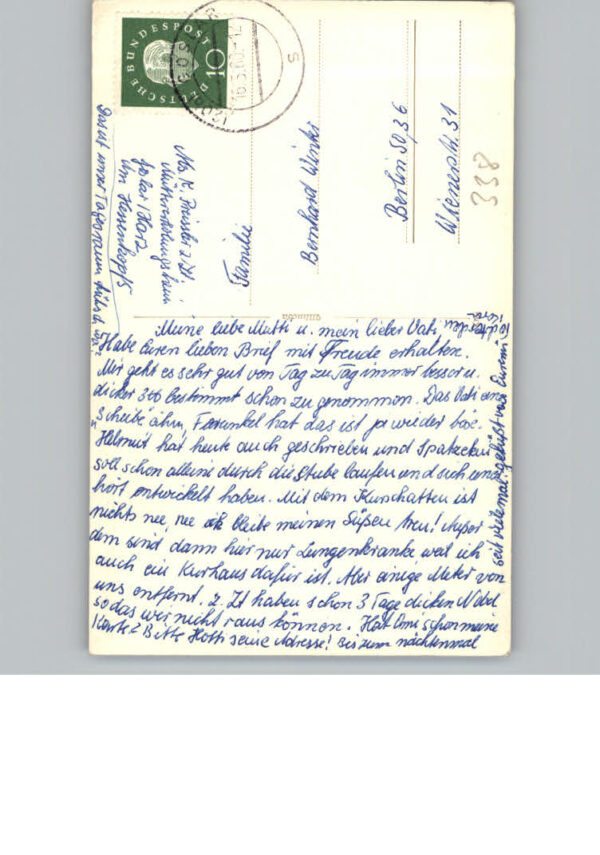 DEUTSCHE BUNDESPOST
10
16.3.60
Familie
Bernhard Winks
Berlin SO 36
Wienerstr. 31
338
Abs. K.
z. Zt.
Harz
Meine liebe Mutti u. mein lieber Vati
Habe Euren lieben Brief mit Freude erhalten.
Mir geht es sehr gut von Tag zu Tag immer besser u.
dicker 300 bestimmt schon zu genommen. Das Vati an
"Scheibe" ähm, Forunkel hat das ist ja wieder böse.
Helmut hat heute auch geschrieben und
soll schon alleine durch die Stube laufen und sich uner
hört entwickelt haben. Mit dem Kurschatten ist
nichts nee, nee ik bleibe meinen Süßen treu! Außer
dem sind dann hier nur Lungenkranke weil ich
auch ein Kurhaus dafür ist. Aber einige Meter von
uns entfernt. z. Zt haben schon 3 Tage dicken Nebel
sodas wir nicht raus können. Hat Omi schon meine
Karte? Bitte Hotti seine Adresse! Bis zum nächtenmal
seit vielemal geküßt von Eurer